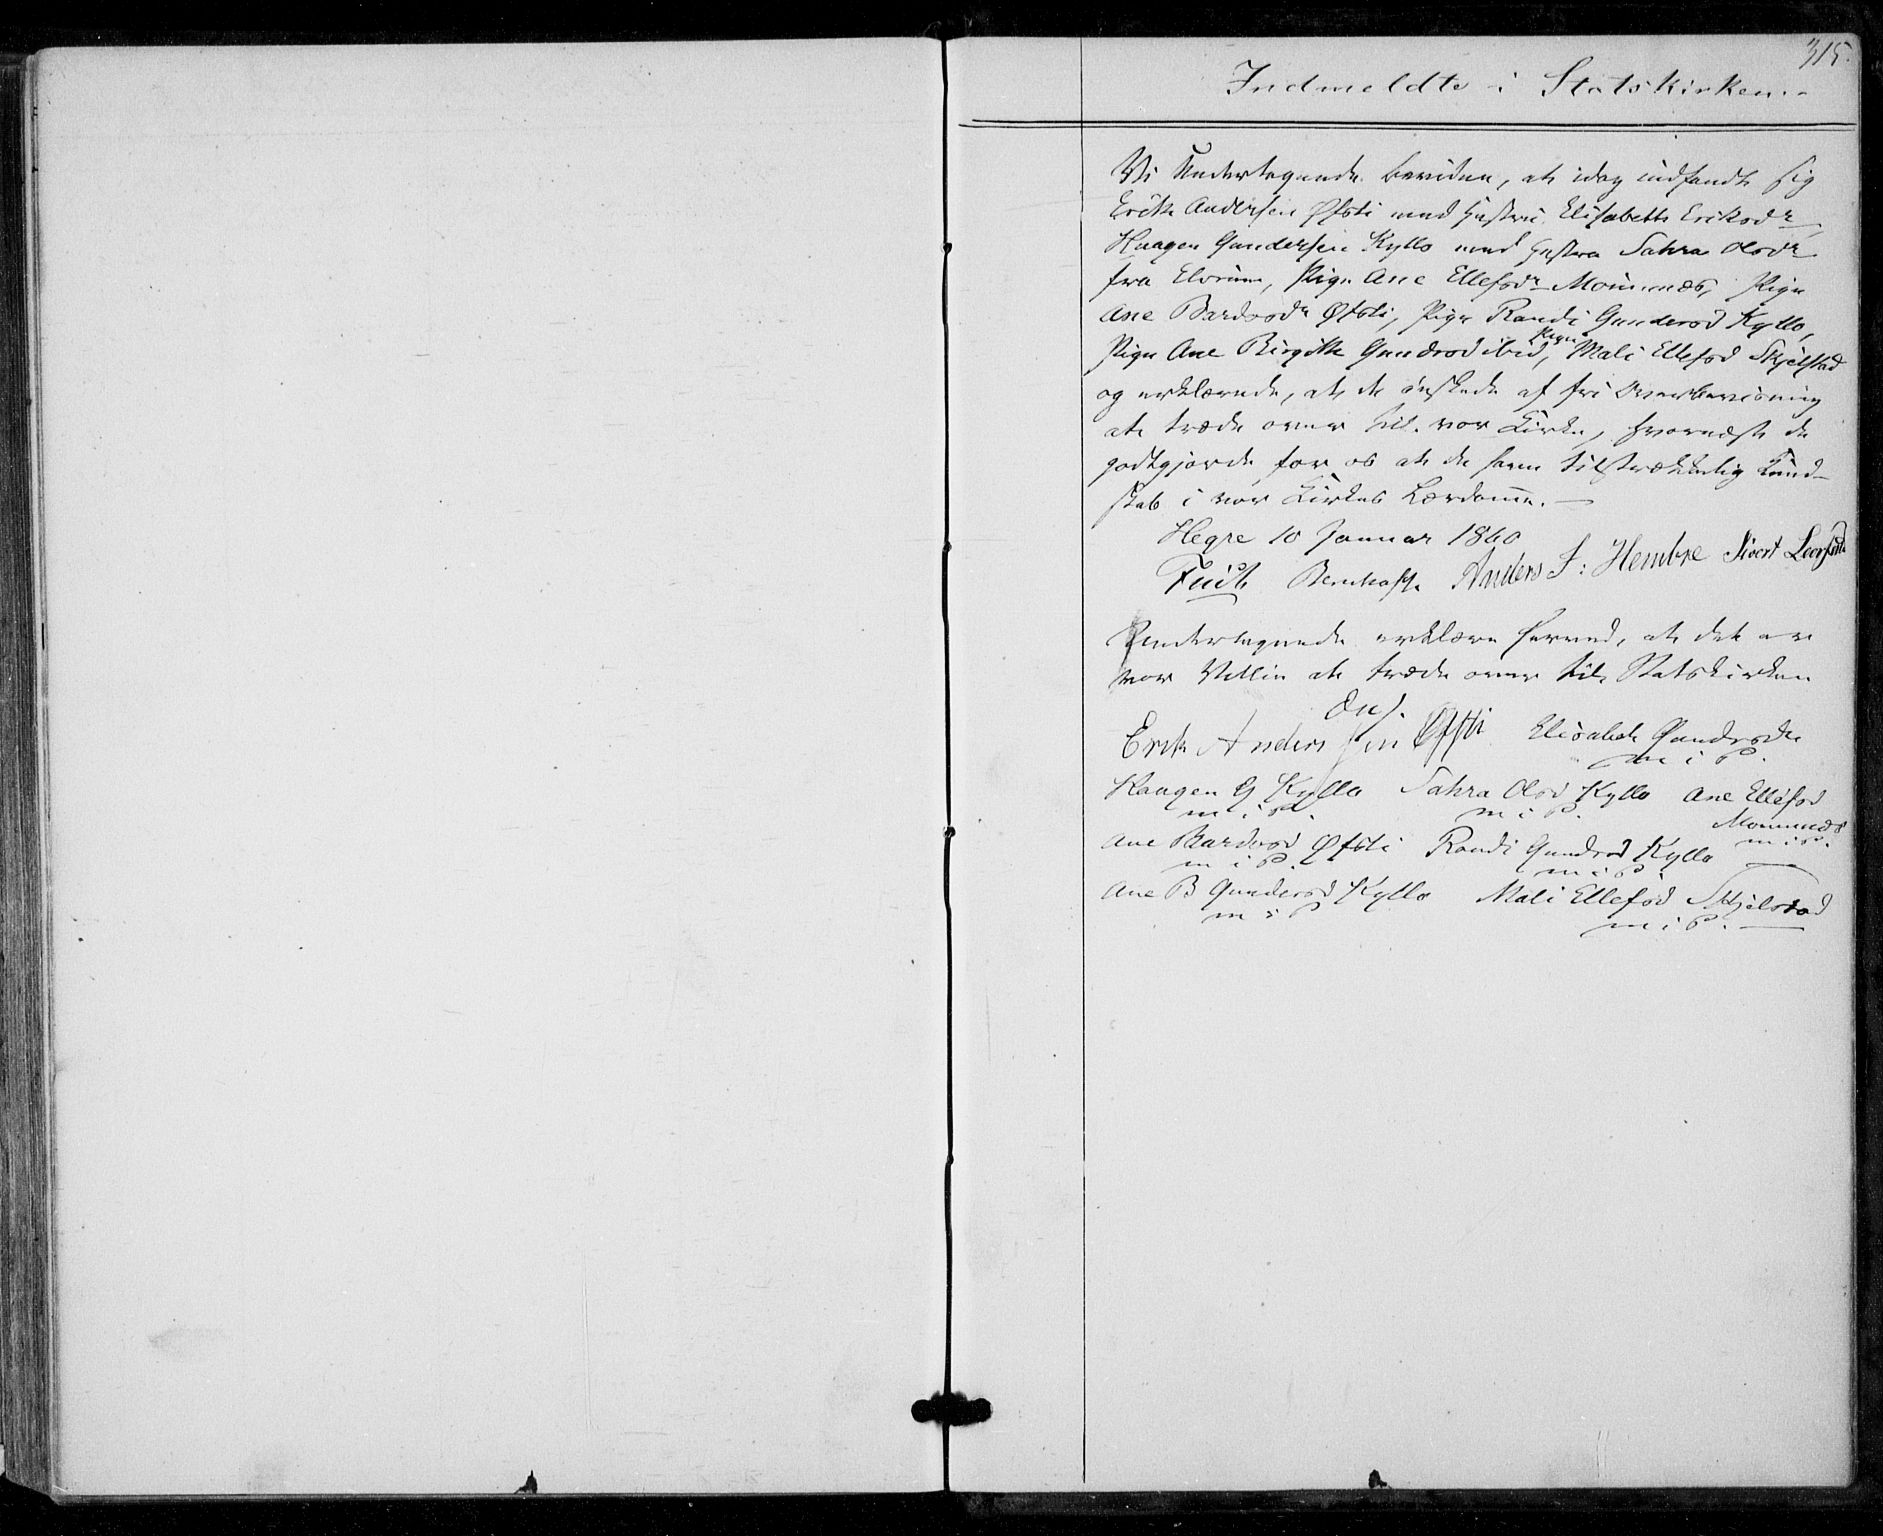 315.
Indmeldte i Statskirken.
Vi Undertegnede bevidne, at idag indfandt sig
Erik Andersen Øfsti med Hustru Elisabeth Eriksdr
Haagen Gundersen Kyllo med Hustru Sahra Olsdr
fra Elvrum, Pige Ane Ellefsdr Momnæs, Pige
Ane Bardosdr Øfsti, Pige Randi Gundersd Kyllo,
Pige Ane Birgitte Gundrsd ibid, Pige Mali Ellefsd Skjelstad
og erklærede, at de ønskede af fri Overbeviisning
at træde over til vor Kirke, hvornæst de
godtgjorde for os at de have tilstrækkelig Kund-
skab i vor Kirkes Lærdomme. —
Hegre 10 Januar 1860
Anders J: Hembre Sivert
Undertegnede erklære herved, at det er
vor Villie at træde over til Statskirken
Erik Andersen Øfsti Elisabeth Gundrsdr
m i P.
Haagen G Kyllo Sahra Olsd Kyllo Ane Ellefsd
m i P. m i P. Momnæs
m i P.
Ane Bardosd Øfsti Randi Gundrsd Kyllo
m i P. m i P.
Ane B Gundersd Kyllo Mali Ellefsd Skjelstad
m i P m i P.